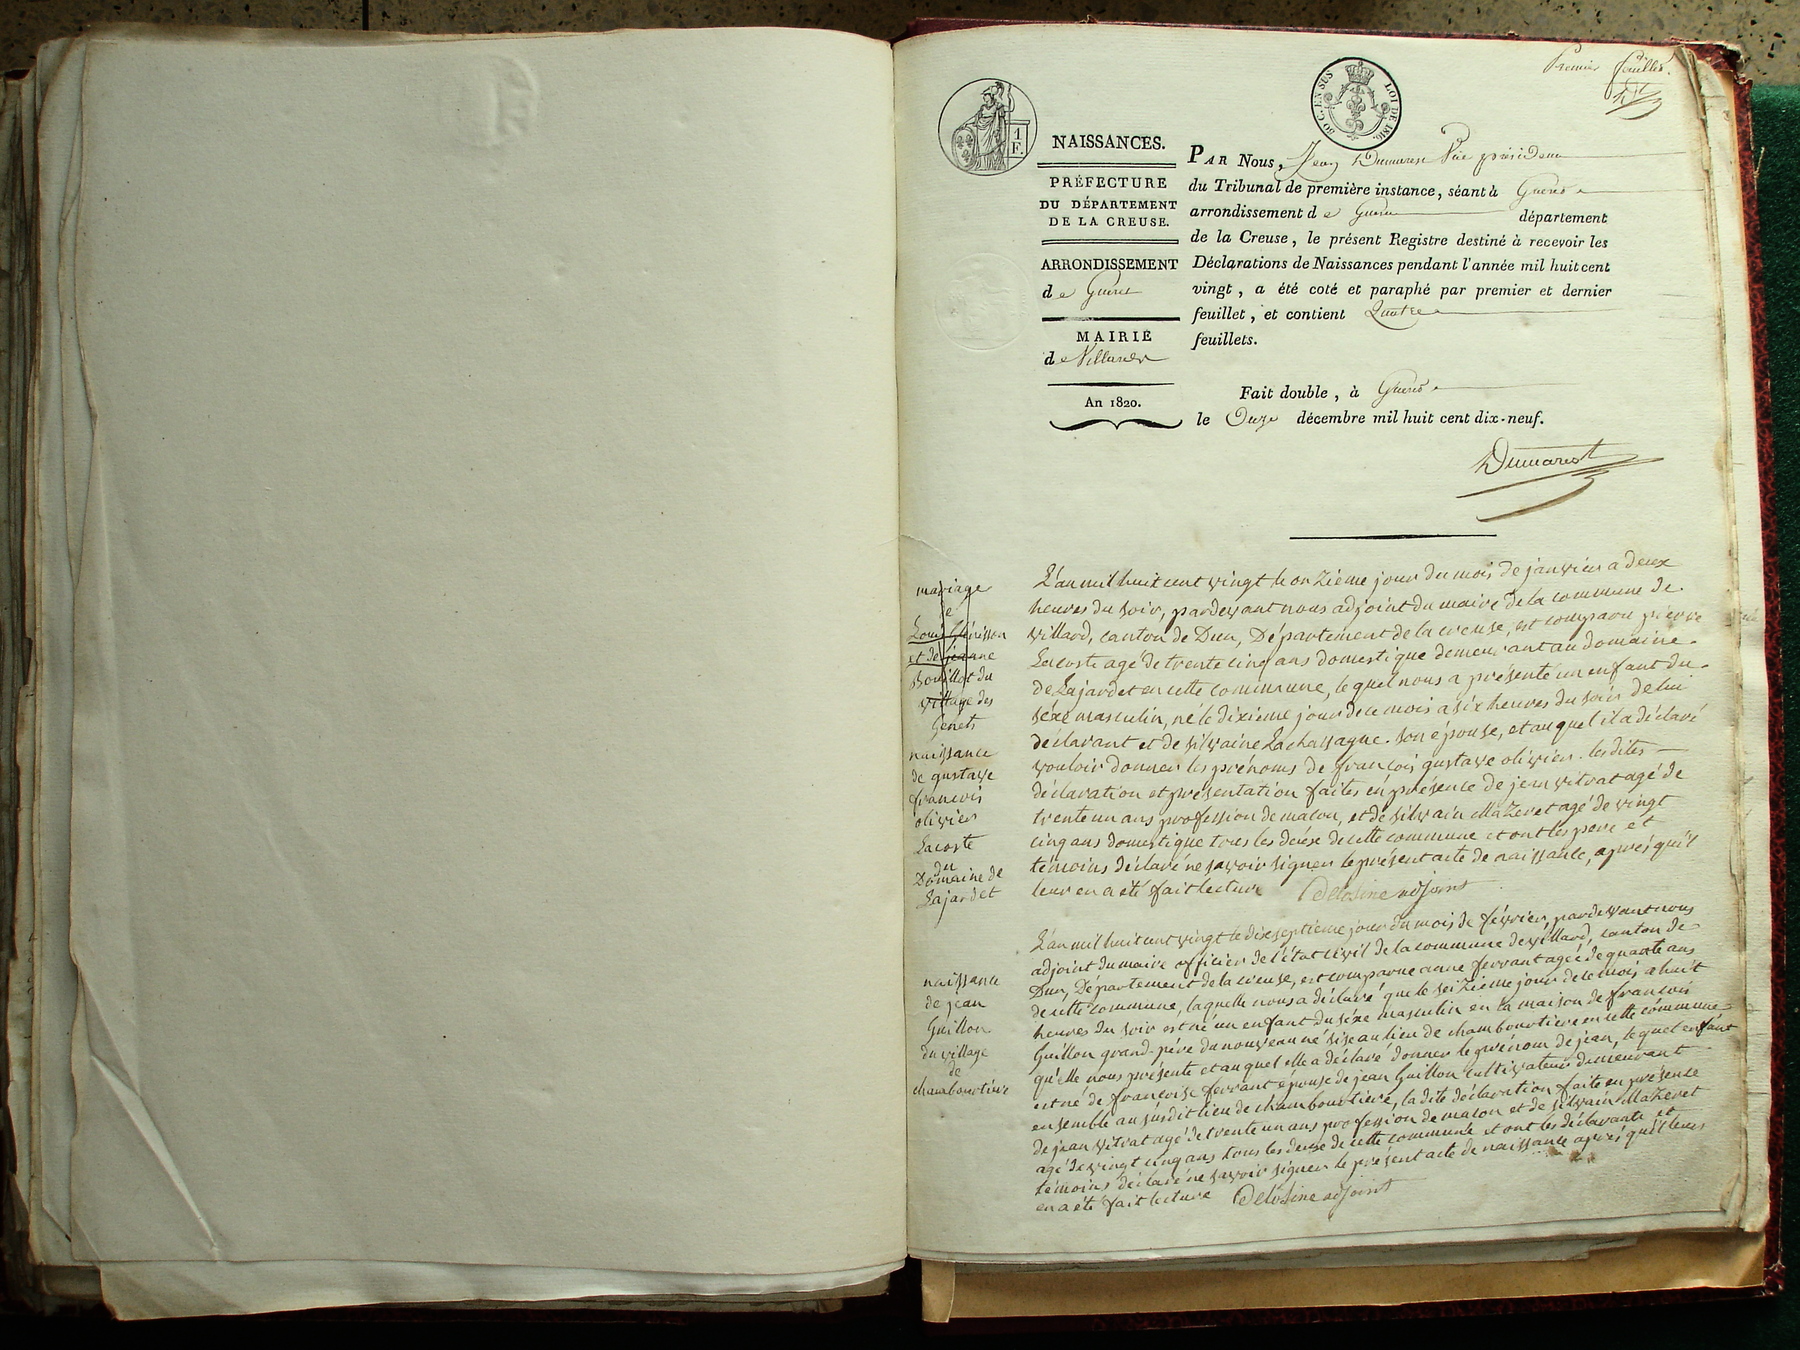 Premier feuillet.
30 C. EN SUS LOI DE 1816.
1 F.
NAISSANCES.
PRÉFECTURE
DU DÉPARTEMENT
DE LA CREUSE.
ARRONDISSEMENT
de Gueret
MAIRIE
de Villard
An 1820.
PAR Nous, Jean Dumarest Vice président
du Tribunal de première instance, séant à Gueret
arrondissement de Gueret département
de la Creuse, le présent Registre destiné à recevoir les
Déclarations de Naissances pendant l'année mil huit cent
vingt, a été coté et paraphé par premier et dernier
feuillet, et contient Quatre
feuillets.
Fait double, à Gueret
le Onze décembre mil huit cent dix-neuf.
Dumarest
mariage
de
Louis
et de jeanne
Bouillot du
village des
Genets
naissance
de gustave
francois
olivier
Lacoste
du
Domaine de
Lajardet
L'an mil huit cent vingt le onzieme jour du mois de janvier a deux
heures du soir, pardevant nous adjoint du maire de la commune de
villard, canton de Dun, Département de la creuse, est comparu pierre
Lacoste agé de trente cinq ans domestique demeurant au domaine
de Lajardet en cette commune, lequel nous a présenté un enfant du
séxe masculin, né le dixieme jour de ce mois a six heures du soir de lui
déclarant et de silvaine Lachassagne son épouse, et auquel il a déclaré
vouloir donner les prénoms de francois gustave olivier. les dites
déclaration et présentation faites en présence de jean vitrat agé de
trente un ans profession de macon, et de silvain Mazeret agé de vingt
cinq ans domestique tous les deux de cette commune et ont les pere et
témoins déclaré ne savoir signer le présent acte de naissance, après qu'il
leur en a été fait lecture Delosine adjoint
naissance
de jean
Guillon
du village
de
chambourtiere
L'an mil huit cent vingt le dix septieme jour du mois de février, pardevant nous
adjoint du maire officier de l'état civil de la commune de villard, canton de
Dun, Département de la creuse, est comparue anne ferrant agée de quarante ans
de cette commune, laquelle nous a déclaré que le seizieme jour de ce mois a huit
heures du soir est né un enfant du séxe masculin en la maison de francois
Guillon grand-pére du nouveau né sise au lieu de chambourtiere en cette commune
qu'elle nous présente et auquel elle a déclaré donner le prénom de jean, lequel enfant
est né de francoise ferrant épouse de jean Guillon cultivateur demeurant
ensemble au susdit lieu de chambourtiere, la dite déclaration faite en présence
de jean vitrat agé de trente un ans profession de macon et de silvain Mazeret
agé de vingt cinq ans tous les deux de cette commune et ont les déclarante et
témoins déclaré ne savoir signer le présent acte de naissance après qu'il leur
en a été fait lecture Delosine adjoint